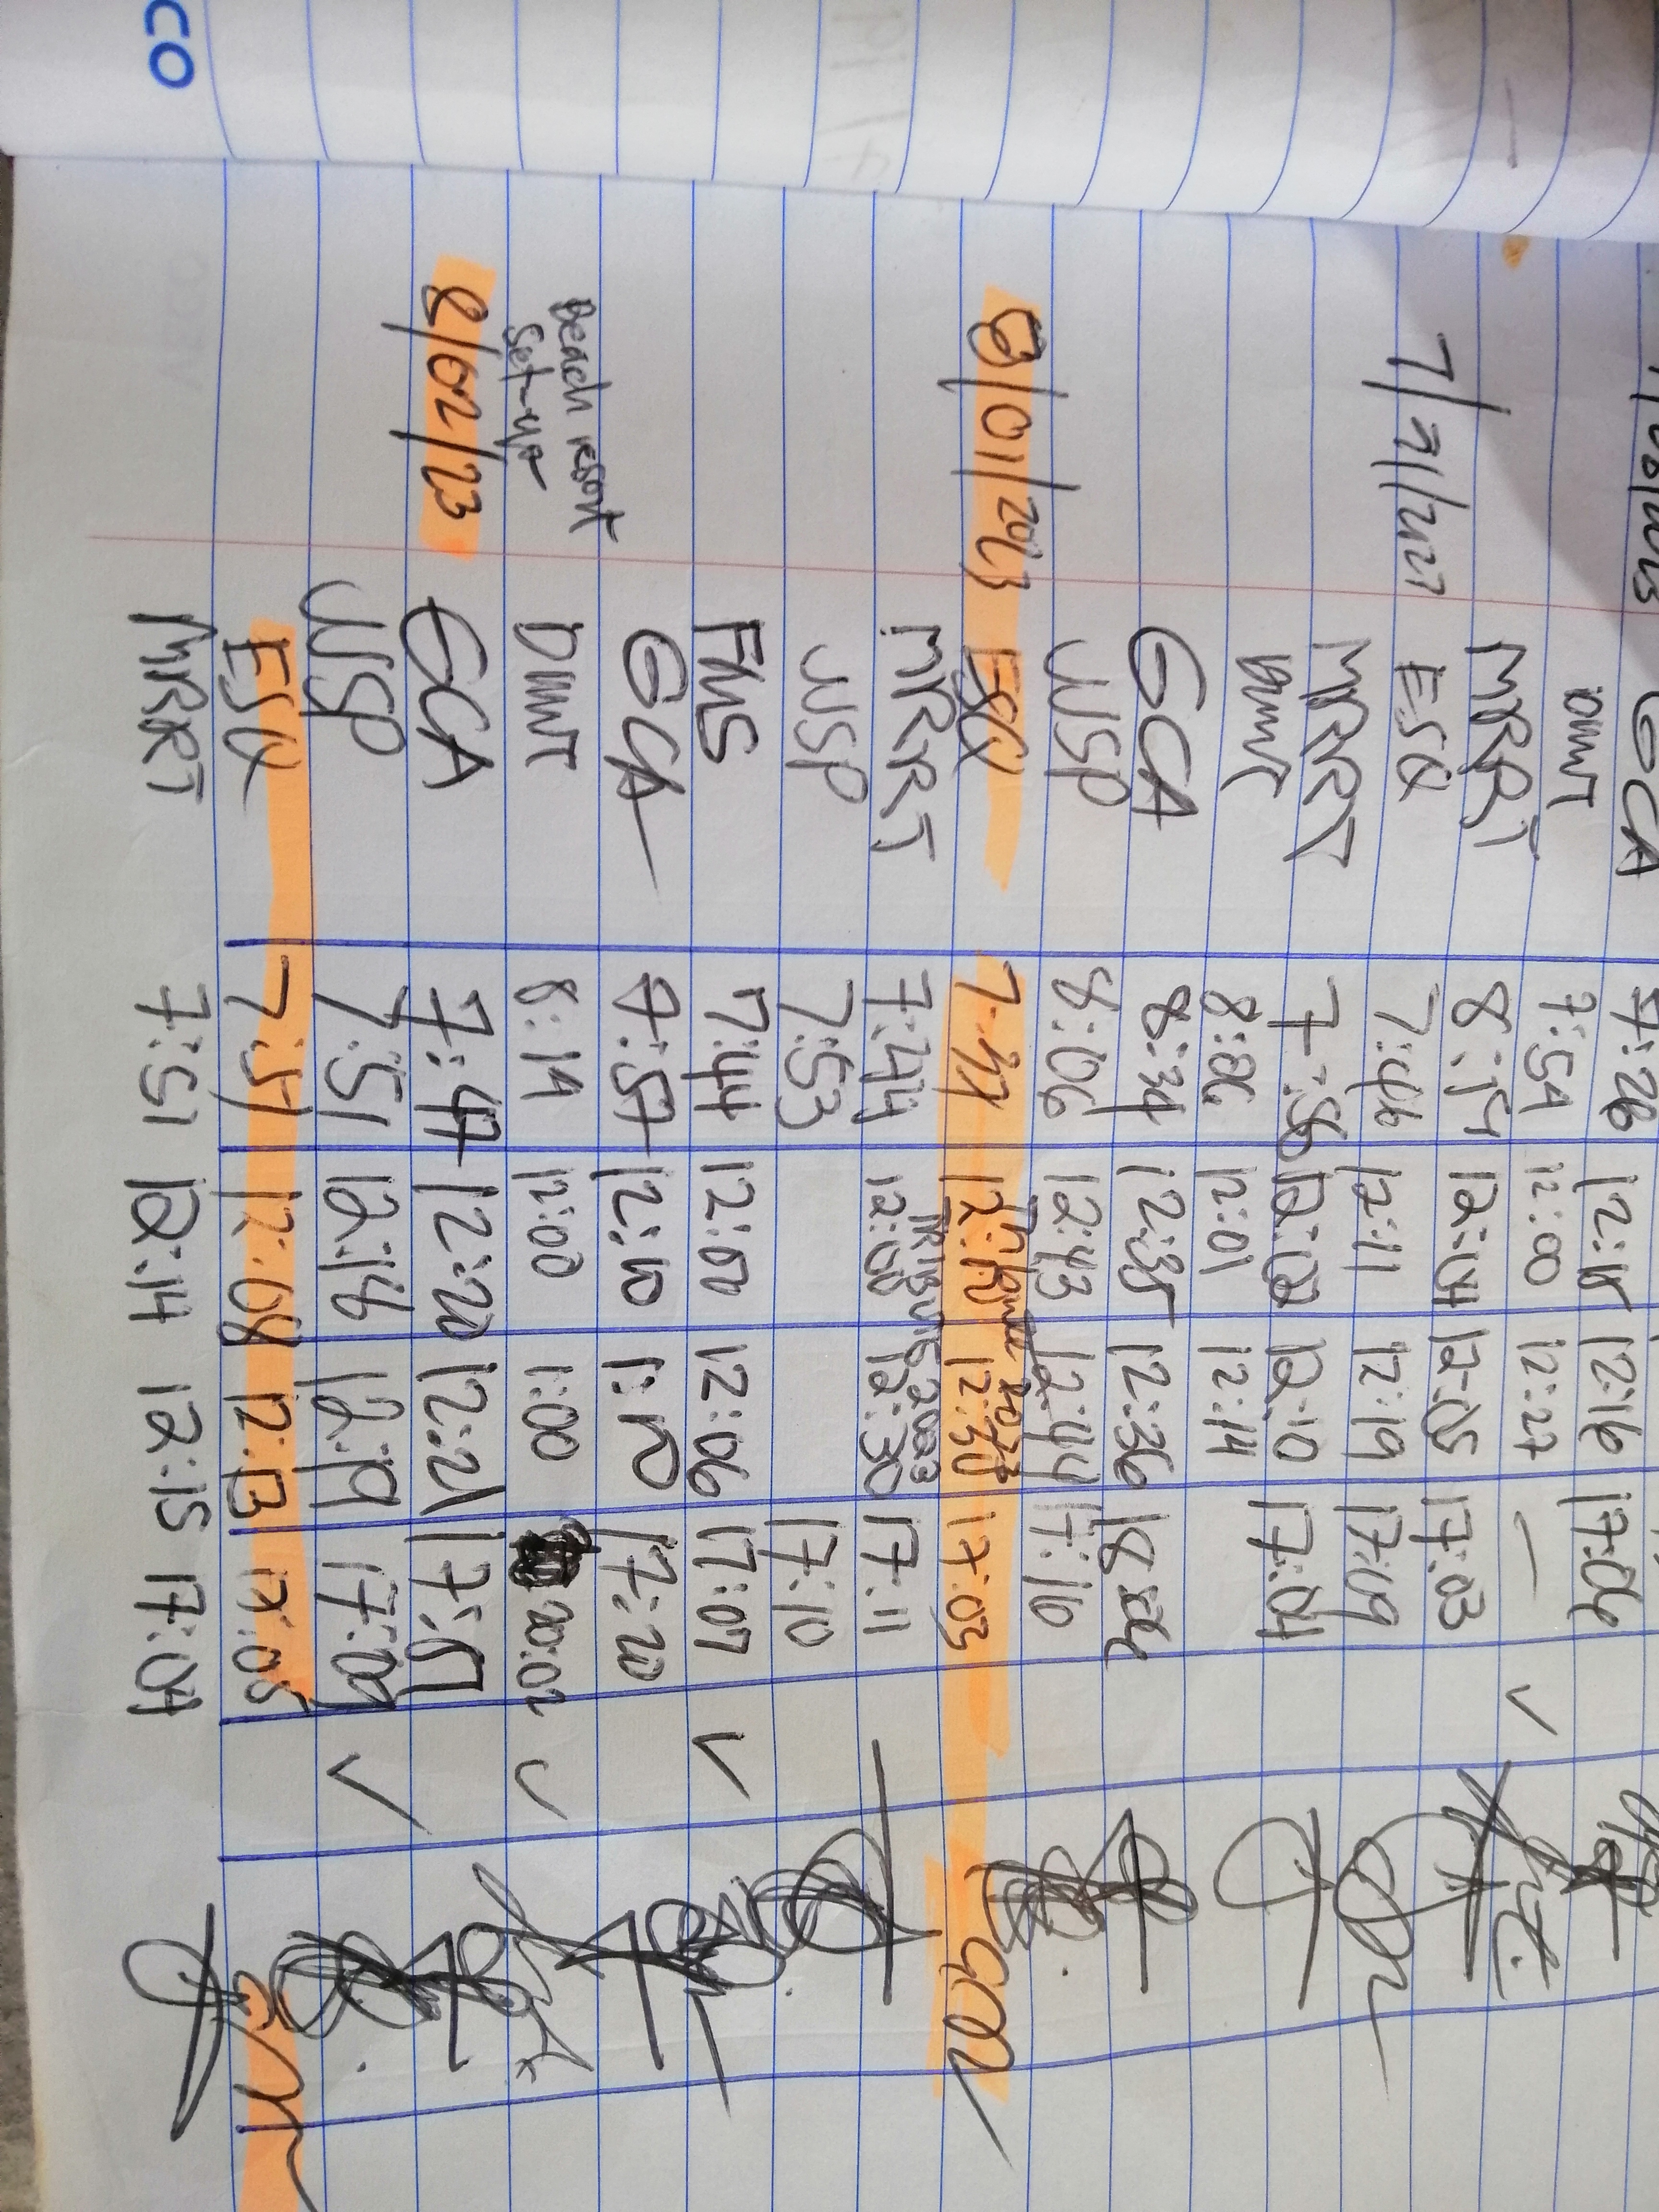 GCA 7:26 12:15 12:16 17:06
DMWT 7:54 12:00 12:27 — ✓
MRRT 8:14 12:04 12:05 17:03
7/31/2023 ESQ 7:46 12:11 12:19 17:09
MRRT 7:58 12:10 17:04
DMWT 8:26 12:01 12:14
GCA 8:34 12:35 12:36
JJSP 8:06 12:43 12:44 17:16
8/01/2023 ESQ 12:30 17:03
MRRT 7:44 12:00 12:30 17:11
JJSP 7:53 17:10
FMS 7:44 12:06 17:07 ✓
GCA 7:57 12:10 17:20
Beach resort
set-up
DMWT 8:14 12:00 1:00 20:02 ✓
8/02/23 GCA 7:47 12:20 12:21 17:07
JJSP 7:51 12:14 12:19 17:09 ✓
ESQ 7:51 12:08 12:13 17:05
MRRT 7:51 12:14 12:15 17:04
CO